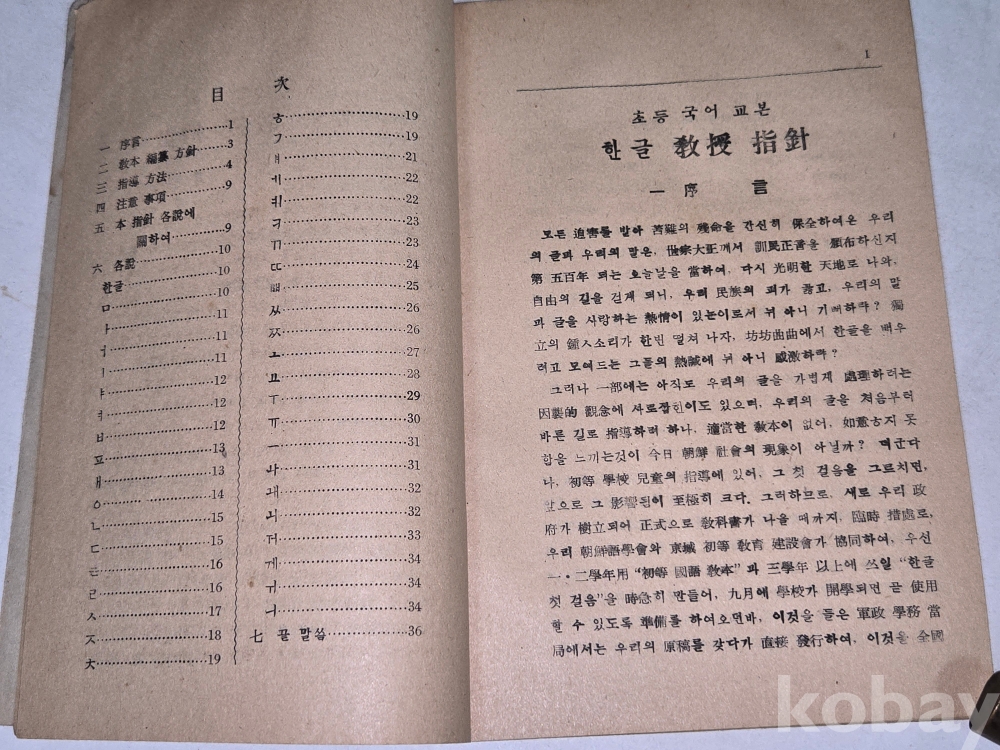 目 次
一 序言 1
二 敎本 編纂 方針 3
三 指導 方法 4
四 注意 事項 9
五 本 指針 各說에
關하여 9
六 各說 10
한글 10
ㅁ 10
ㅏ 11
ㅓ 11
ㅣ 11
ㅑ 12
ㅕ 12
ㅂ 12
ㅍ 13
ㅐ 13
ㅇ 14
ㄴ 15
ㄷ 15
ㅌ 16
ㄹ 16
ㅅ 17
ㅈ 18
ㅊ 19
ㅎ 19
ㄱ 19
ㅒ 21
ㅔ 22
ㅖ 22
ㅋ 23
ㄲ 23
ㄸ 24
ㅃ 25
ㅆ 26
ㅉ 26
ㅗ 27
ㅛ 28
ㅜ 29
ㅠ 30
ㅡ 31
ㅘ 31
ㅙ 32
ㅚ 32
ㅝ 33
ㅞ 34
ㅟ 34
ㅢ 34
七 끝 말씀 36
1
초등 국어 교본
한글 敎授 指針
一 序 言
모든 迫害를 받아 苦難의 殘命을 간신히 保全하여온 우리
의 글과 우리의 말은, 世宗大王께서 訓民正音을 頒布하신지
第 五百年 되는 오늘날을 當하여, 다시 光明한 天地로 나와,
自由의 길을 걷게 되니, 우리 民族의 피가 끓고, 우리의 말
과 글을 사랑하는 熱情이 있는이로서 뉘 아니 기뻐하랴? 獨
立의 鍾ㅅ소리가 한번 떨쳐 나자, 坊坊曲曲에서 한글을 배우
려고 모여드는 그들의 熱誠에 뉘 아니 感激하랴?
그러나 一部에는 아직도 우리의 글을 가볍게 處理하려는
因襲的 觀念에 사로잡힌이도 있으며, 우리의 글을 처음부터
바른 길로 指導하려 하나, 適當한 敎本이 없어, 如意ㅎ지 못
함을 느끼는것이 今日 朝鮮 社會의 現象이 아닐까? 더군다
나, 初等 學校 兒童의 指導에 있어, 그 첫 걸음을 그르치면,
앞으로 그 影響됨이 至極히 크다. 그러하므로, 새로 우리 政
府가 樹立되어 正式으로 敎科書가 나올 때까지, 臨時 措處로,
우리 朝鮮語學會와 京城 初等 敎育 建設會가 協同하여, 우선
一·二學年用 “初等 國語 敎本”과 三學年 以上에 쓰일 “한글
첫 걸음”을 時急히 만들어, 九月에 學校가 開學되면 곧 使用
할 수 있도록 準備를 하여오던바, 이것을 들은 軍政 學務 當
局에서는 우리의 原稿를 갖다가 直接 發行하여, 이것을 全國
kobay